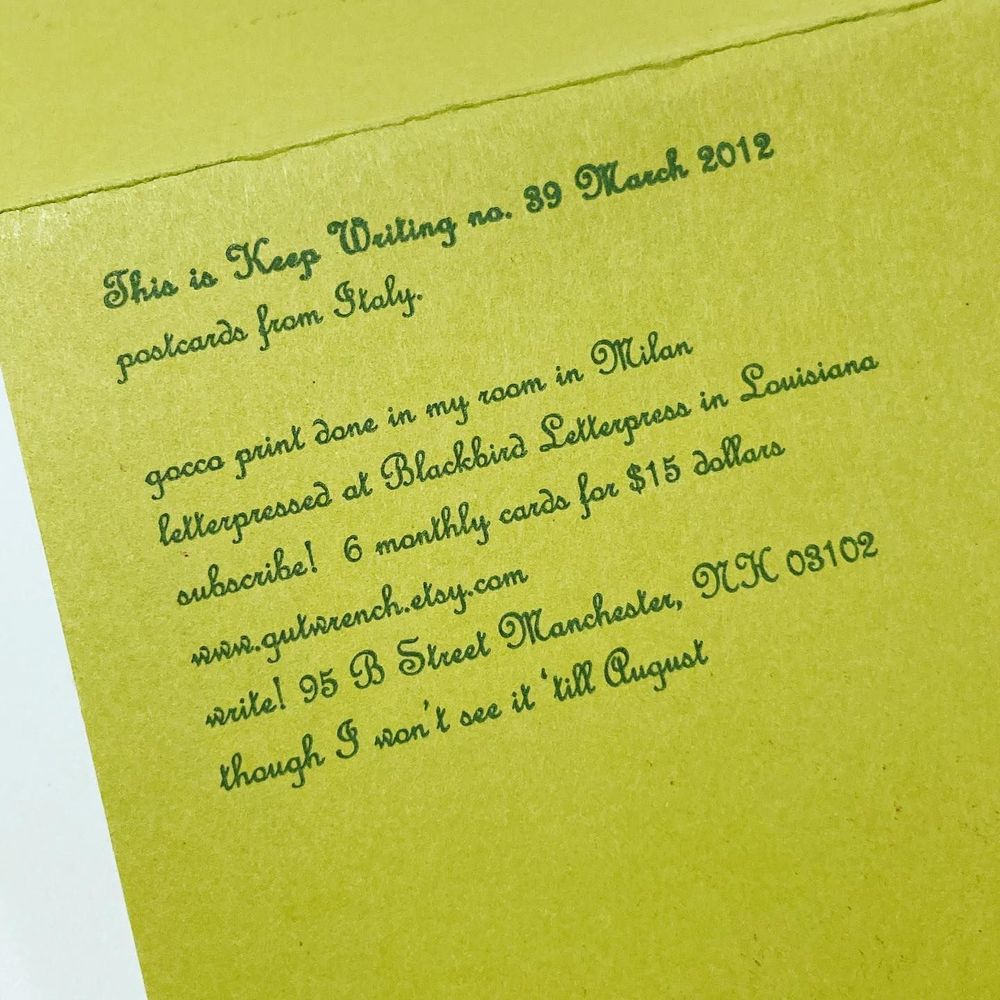 This is Keep Writing no. 39 March 2012
postcards from Italy.
gocco print done in my room in Milan
letterpressed at Blackbird Letterpress in Louisiana
subscribe! 6 monthly cards for $15 dollars
www.gutwrench.etsy.com
write! 95 B Street Manchester, NH 03102
though I won't see it 'till August